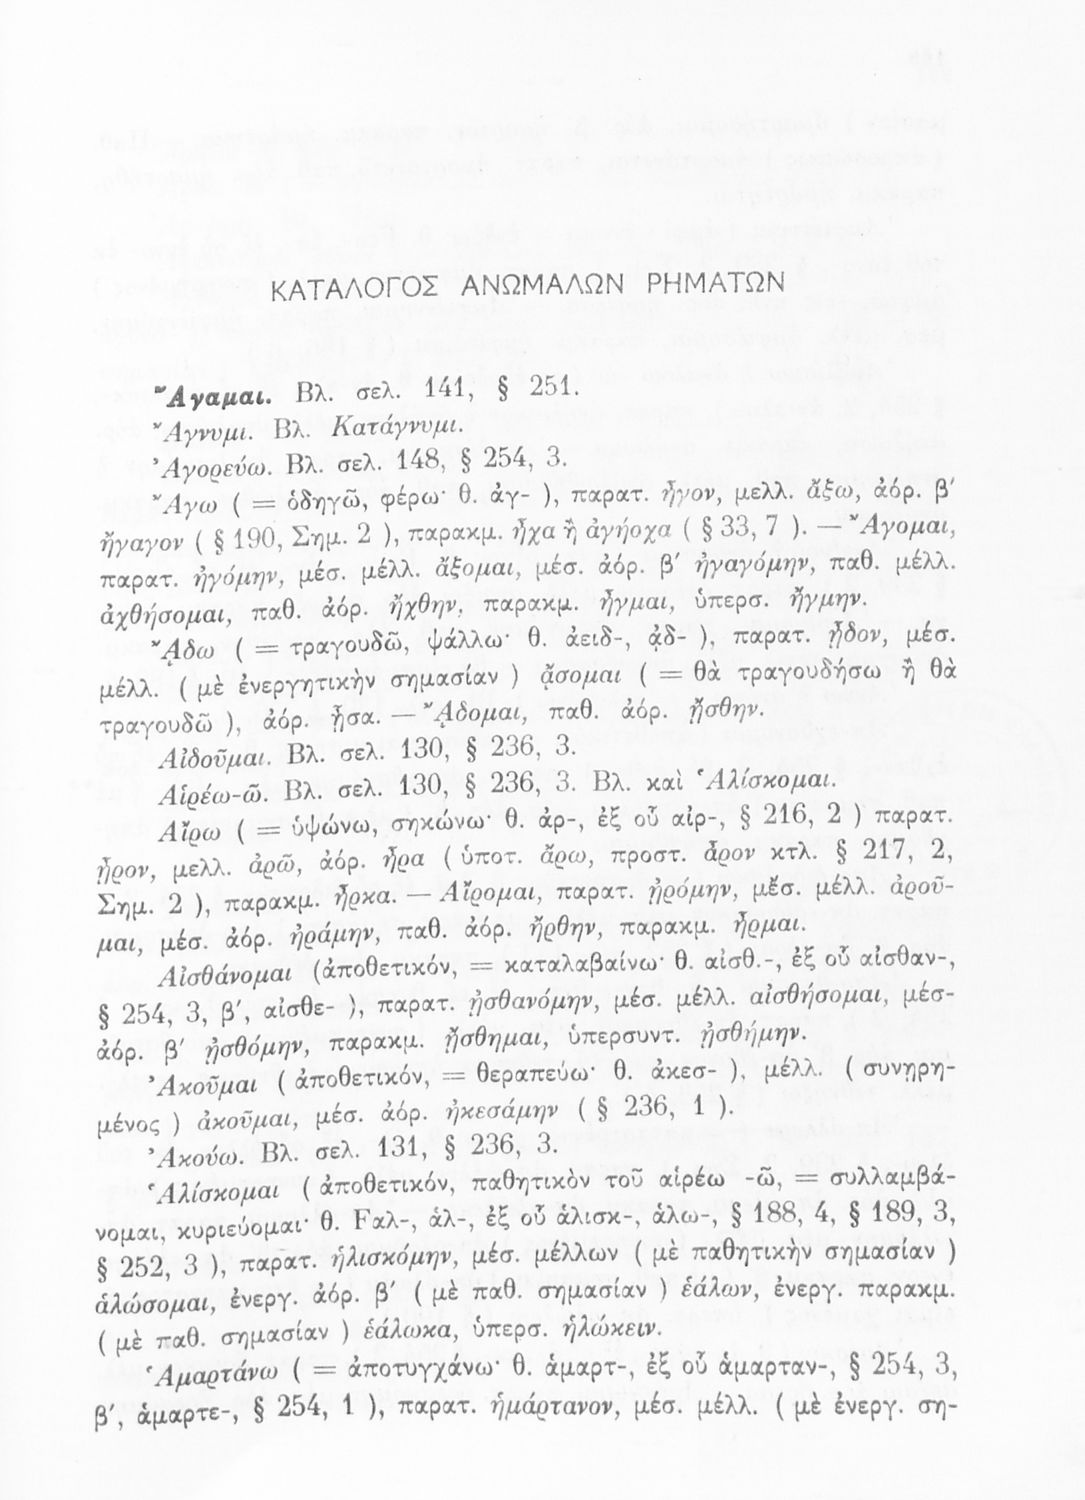 ΚΑΤΑΛΟΓΟΣ ΑΝΩΜΑΛΩΝ ΡΗΜΑΤΩΝ
Ἄγαμαι. Βλ. σελ. 141, § 251.
Ἄγνυμι. Βλ. Κατάγνυμι.
Ἀγορεύω. Βλ. σελ. 148, § 254, 3.
Ἄγω ( = ὁδηγῶ, φέρω· θ. ἀγ- ), παρατ. ἦγον, μελλ. ἄξω, ἀόρ. β′
ἤγαγον ( § 190, Σημ. 2 ), παρακμ. ἦχα ἢ ἀγήοχα ( § 33, 7 ). — Ἄγομαι,
παρατ. ἠγόμην, μέσ. μέλλ. ἄξομαι, μέσ. ἀόρ. β′ ἠγαγόμην, παθ. μέλλ.
ἀχθήσομαι, παθ. ἀόρ. ἤχθην, παρακμ. ἦγμαι, ὑπερσ. ἤγμην.
ᾌδω ( = τραγουδῶ, ψάλλω· θ. ἀειδ-, ᾀδ- ), παρατ. ᾖδον, μέσ.
μέλλ. ( μὲ ἐνεργητικὴν σημασίαν ) ᾄσομαι ( = θὰ τραγουδήσω ἢ θὰ
τραγουδῶ ), ἀόρ. ᾖσα. — ᾌδομαι, παθ. ἀόρ. ᾔσθην.
Αἰδοῦμαι. Βλ. σελ. 130, § 236, 3.
Αἱρέω-ῶ. Βλ. σελ. 130, § 236, 3. Βλ. καὶ Ἁλίσκομαι.
Αἴρω ( = ὑψώνω, σηκώνω· θ. ἀρ-, ἐξ οὗ αἰρ-, § 216, 2 ) παρατ.
ᾖρον, μελλ. ἀρῶ, ἀόρ. ἦρα ( ὑποτ. ἄρω, προστ. ἆρον κτλ. § 217, 2,
Σημ. 2 ), παρακμ. ἦρκα. — Αἴρομαι, παρατ. ᾐρόμην, μέσ. μέλλ. ἀροῦ-
μαι, μέσ. ἀόρ. ἠράμην, παθ. ἀόρ. ἤρθην, παρακμ. ἦρμαι.
Αἰσθάνομαι (ἀποθετικόν, = καταλαβαίνω· θ. αἰσθ.-, ἐξ οὗ αἰσθαν-,
§ 254, 3, β′, αἰσθε- ), παρατ. ᾐσθανόμην, μέσ. μέλλ. αἰσθήσομαι, μέσ-
ἀόρ. β′ ᾐσθόμην, παρακμ. ᾔσθημαι, ὑπερσυντ. ᾐσθήμην.
Ἀκοῦμαι ( ἀποθετικόν, = θεραπεύω· θ. ἀκεσ- ), μέλλ. ( συνῃρη-
μένος ) ἀκοῦμαι, μέσ. ἀόρ. ἠκεσάμην ( § 236, 1 ).
Ἀκούω. Βλ. σελ. 131, § 236, 3.
Ἁλίσκομαι ( ἀποθετικόν, παθητικὸν τοῦ αἱρέω -ῶ, = συλλαμβά-
νομαι, κυριεύομαι· θ. Fαλ-, ἁλ-, ἐξ οὗ ἁλισκ-, ἁλω-, § 188, 4, § 189, 3,
§ 252, 3 ), παρατ. ἡλισκόμην, μέσ. μέλλων ( μὲ παθητικὴν σημασίαν )
ἁλώσομαι, ἐνεργ. ἀόρ. β′ ( μὲ παθ. σημασίαν ) ἑάλων, ἐνεργ. παρακμ.
( μὲ παθ. σημασίαν ) ἑάλωκα, ὑπερσ. ἡλώκειν.
Ἁμαρτάνω ( = ἀποτυγχάνω· θ. ἁμαρτ-, ἐξ οὗ ἁμαρταν-, § 254, 3,
β′, ἁμαρτε-, § 254, 1 ), παρατ. ἡμάρτανον, μέσ. μέλλ. ( μὲ ἐνεργ. ση-